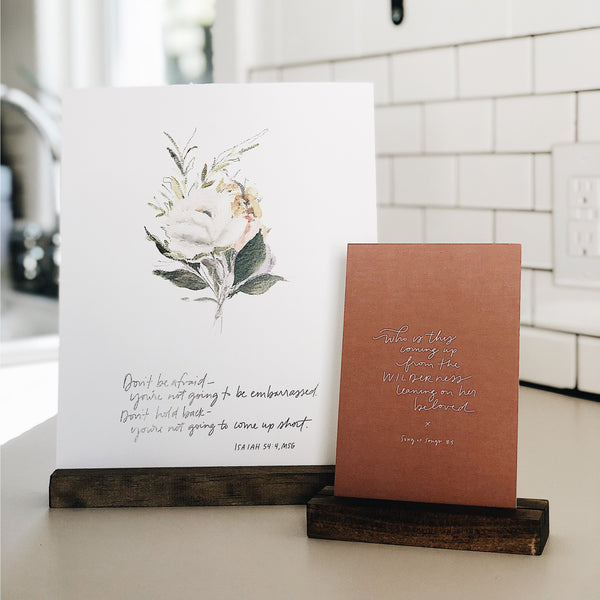 Don't be afraid—
you're not going to be embarrassed.
Don't hold back—
you're not going to come up short.
ISAIAH 54:4, MSG
Who is this
coming up
from the
WILDERNESS
leaning on her
beloved
x
Song of Songs 8:5